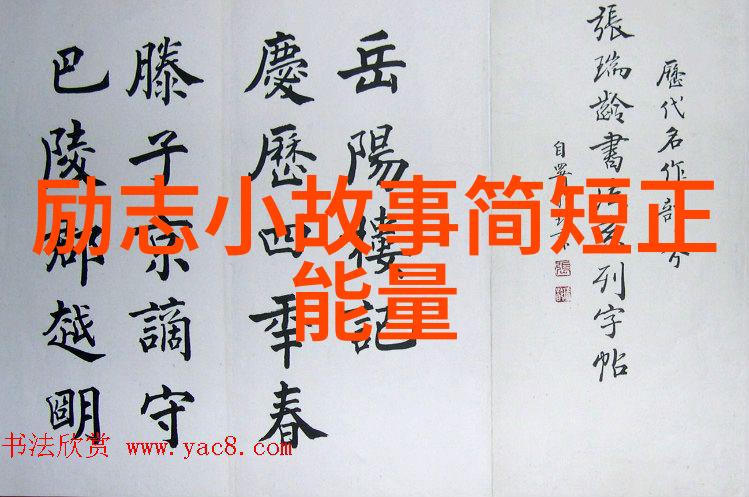 励志小故事简短正
能量
歷代名作部分
張瑞齡書法系列字帖
岳陽樓記
慶歷四年春
滕子京謫守
巴陵郡越明
书法欣赏 www.yac8.com